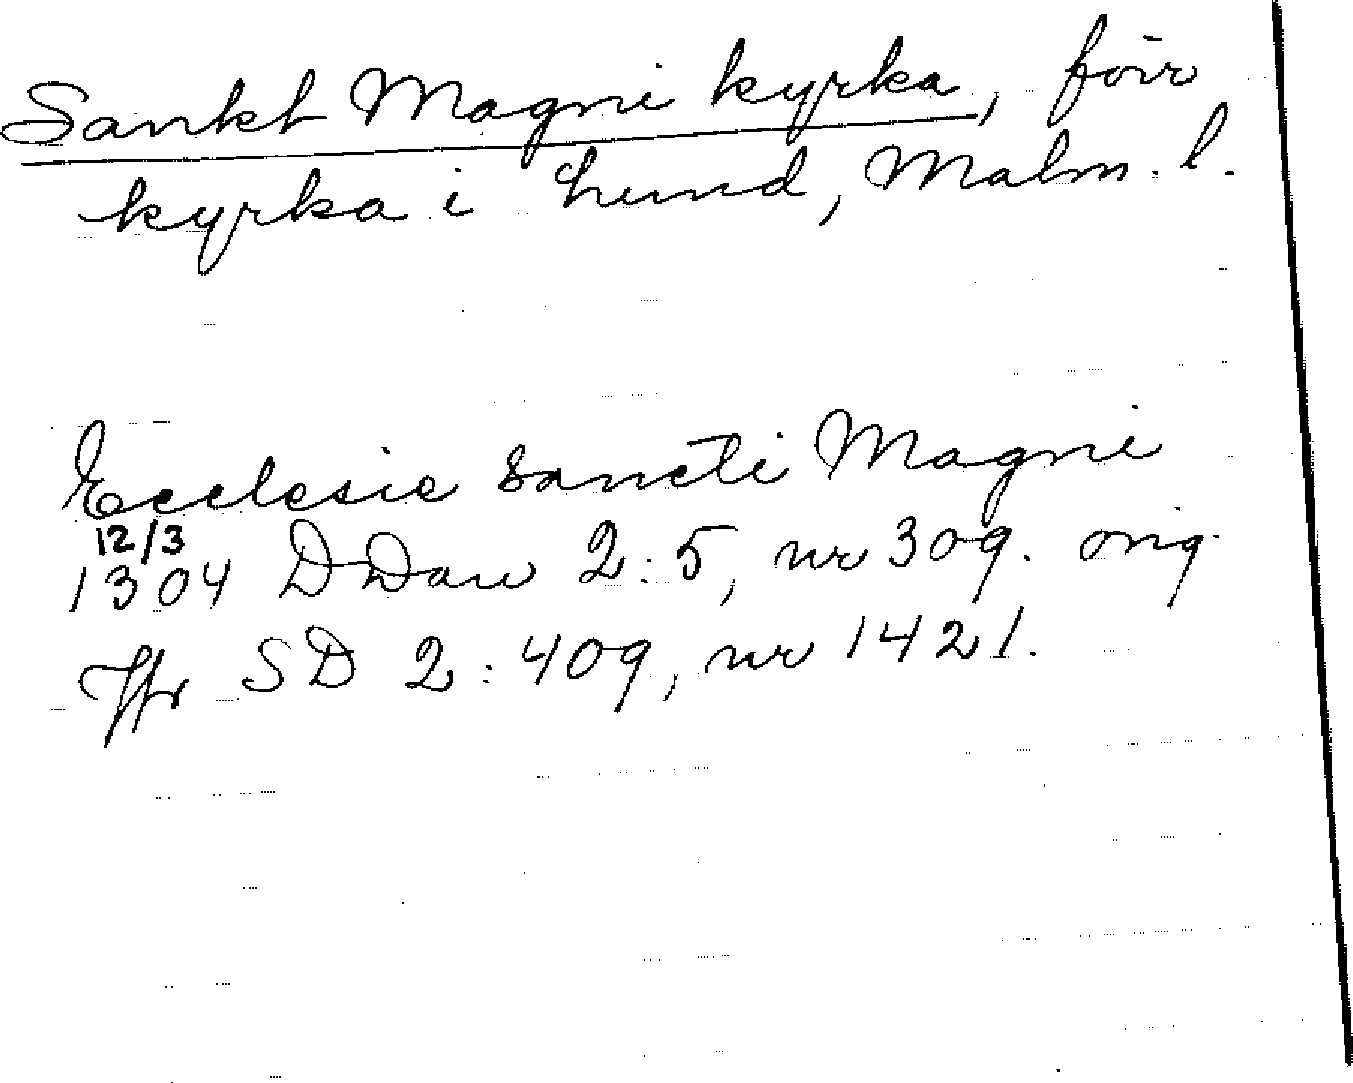 Sankt Magni kyrka, förr
kyrka i Lund, Malm. l.
Ecclesie sancti Magni
12/3
1304 DDan 2:5, nr 309. orig.
Jfr SD 2:409, nr 1421.